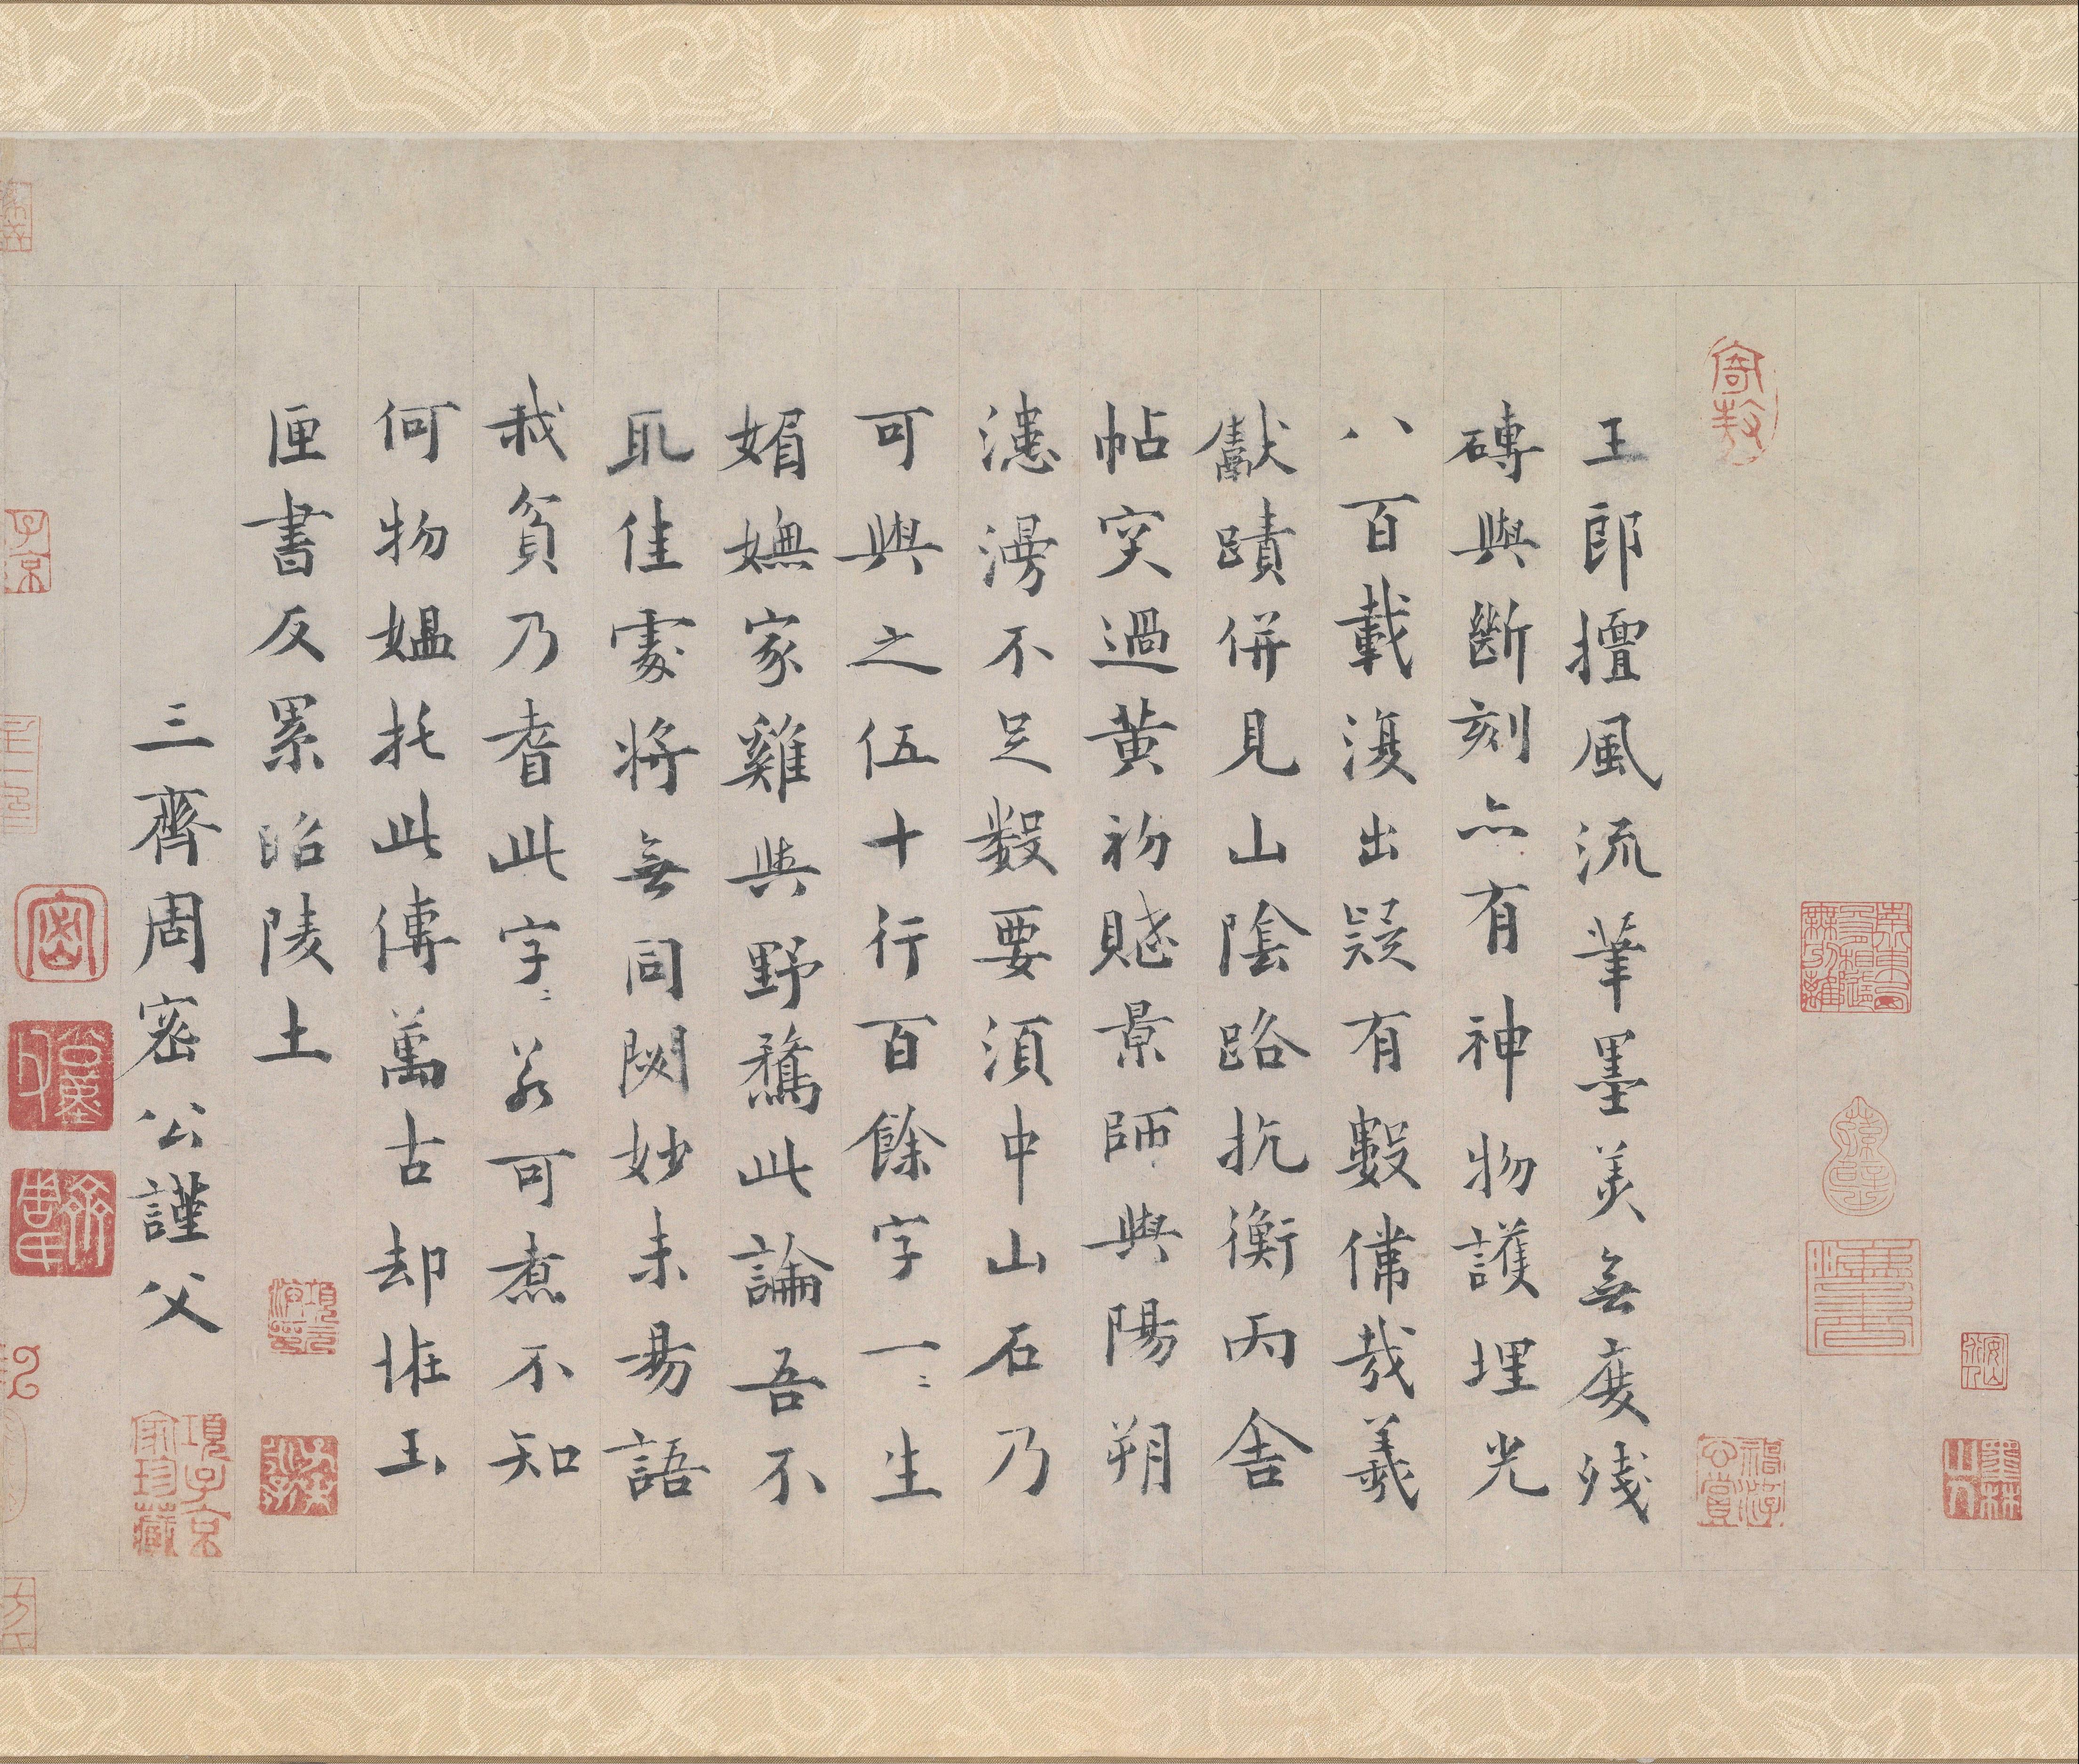 王郎擅風流筆墨美無度殘
磚與斷刻亦有神物護埋光
八百載復出疑有數偉哉羲
獻蹟併見山陰路抗衡丙舍
帖突過黃初賤景師與陽朔
漶漫不足數要須中山石乃
可與之伍十行百餘字一〻生
媚嫵家雞與野鶩此論吾不
取佳處將無同閟妙未易語
我貧乃耆此字〻若可煮不知
何物媼托此傳萬古却恠玉
匣書反累昭陵土
三齊周密公謹父
項子京
家珍藏
子京